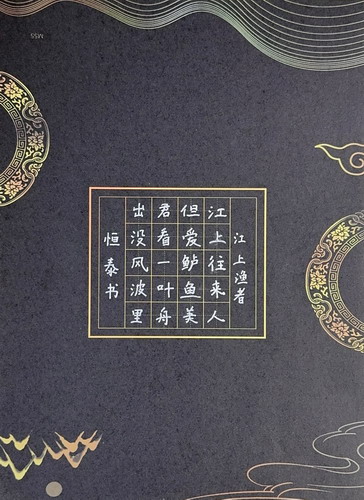 江上渔者
江上往来人
但爱鲈鱼美
君看一叶舟
出没风波里
恒泰书
M55